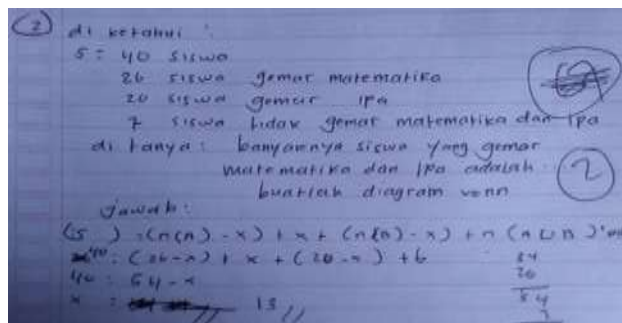 2
di ketahui :
S = 40 siswa
26 siswa gemar matematika
20 siswa gemar ipa
7 siswa tidak gemar matematika dan ipa
di tanya : banyaknya siswa yang gemar
matematika dan Ipa adalah
buatlah diagram venn
2
Jawab :
(S ) = (n(A) - x) + x + (n(B) - x) + n (A ∪ B)'
40 : (26 - x) + x + (20 - x) + 6
40 : 54 - x
x : 13 //
54